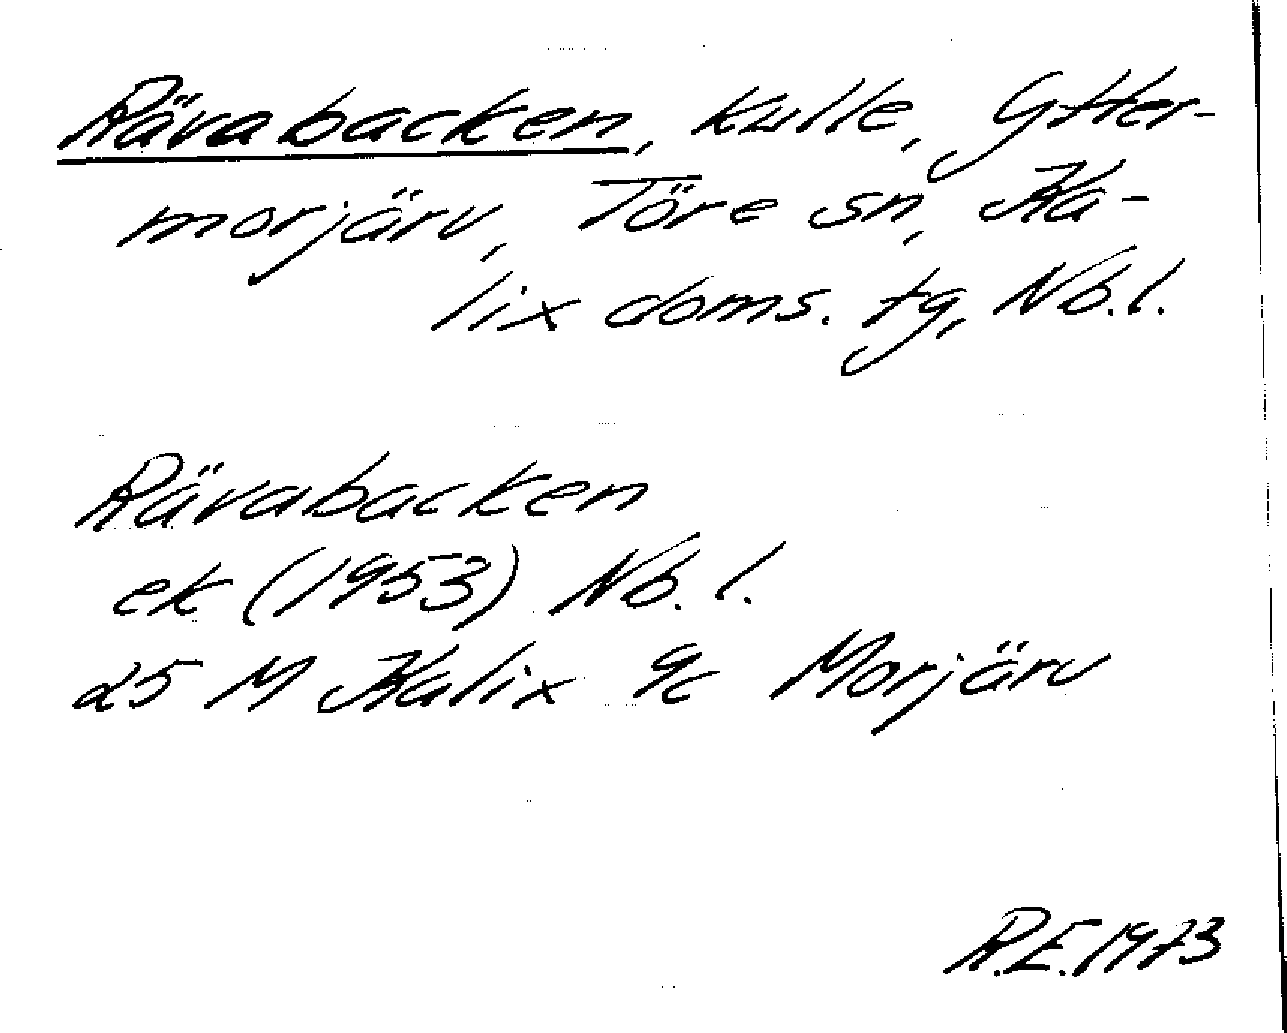 Rävabacken, kulle, Ytter-
morjärv, Töre sn, Ka-
lix doms. tg, Nb.l.
Rävabacken
ek (1953) Nb.l.
25 M Kalix 9c Morjärv
R.E. 1973